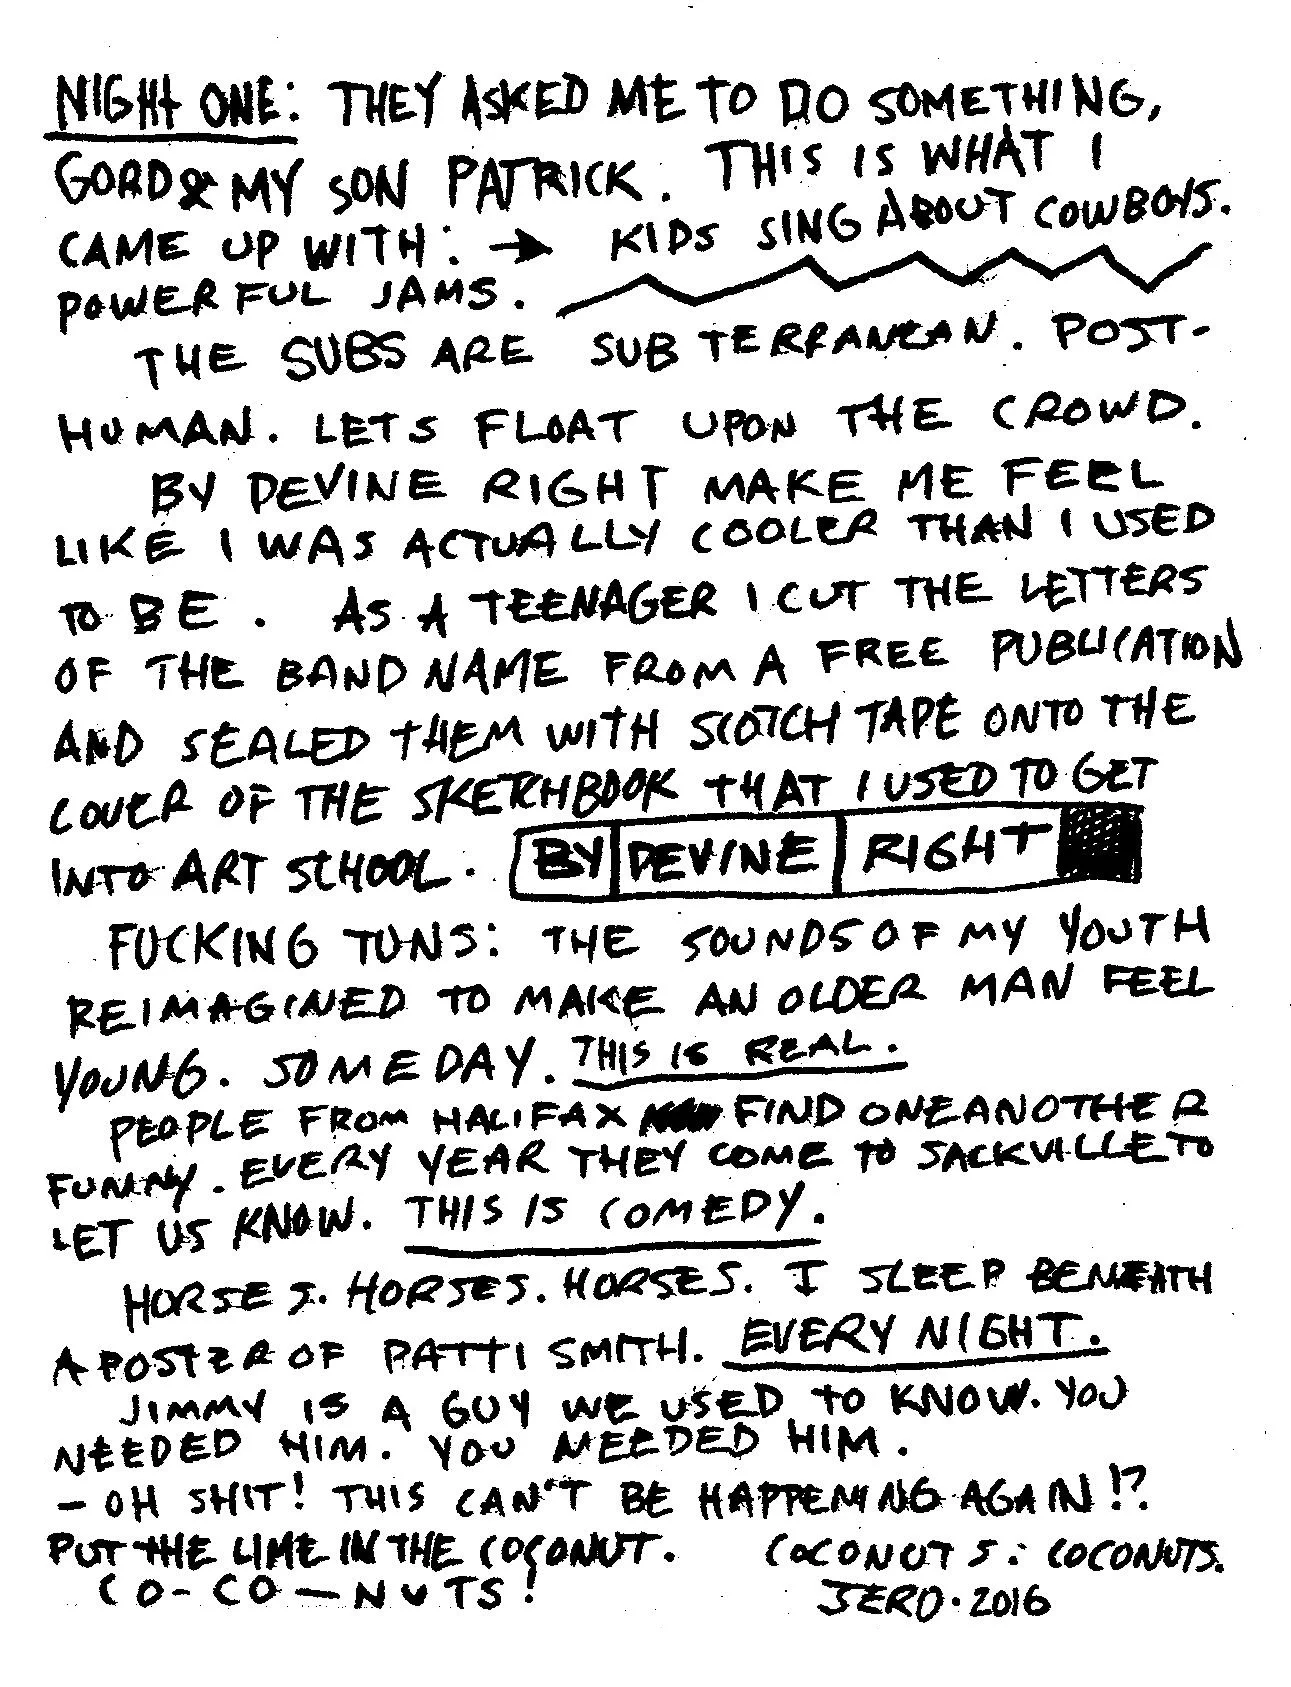 NIGHT ONE: THEY ASKED ME TO DO SOMETHING,
GORD & MY SON PATRICK. THIS IS WHAT I
CAME UP WITH: → KIDS SING ABOUT COWBOYS.
POWERFUL JAMS.
THE SUBS ARE SUBTERRANEAN. POST-
HUMAN. LETS FLOAT UPON THE CROWD.
BY DEVINE RIGHT MAKE ME FEEL
LIKE I WAS ACTUALLY COOLER THAN I USED
TO BE. AS A TEENAGER I CUT THE LETTERS
OF THE BAND NAME FROM A FREE PUBLICATION
AND SEALED THEM WITH SCOTCH TAPE ONTO THE
COVER OF THE SKETCHBOOK THAT I USED TO GET
INTO ART SCHOOL. BY DEVINE RIGHT
FUCKING TUNS: THE SOUNDS OF MY YOUTH
REIMAGINED TO MAKE AN OLDER MAN FEEL
YOUNG. SOMEDAY. THIS IS REAL.
PEOPLE FROM HALIFAX FIND ONE ANOTHER
FUNNY. EVERY YEAR THEY COME TO SACKVILLE TO
LET US KNOW. THIS IS COMEDY.
HORSES. HORSES. HORSES. I SLEEP BENEATH
A POSTER OF PATTI SMITH. EVERY NIGHT.
JIMMY IS A GUY WE USED TO KNOW. YOU
NEEDED HIM. YOU NEEDED HIM.
- OH SHIT! THIS CAN'T BE HAPPENING AGAIN!?
PUT THE LIME IN THE COCONUT. COCONUTS: COCONUTS.
CO-CO-NUTS! JERO. 2016